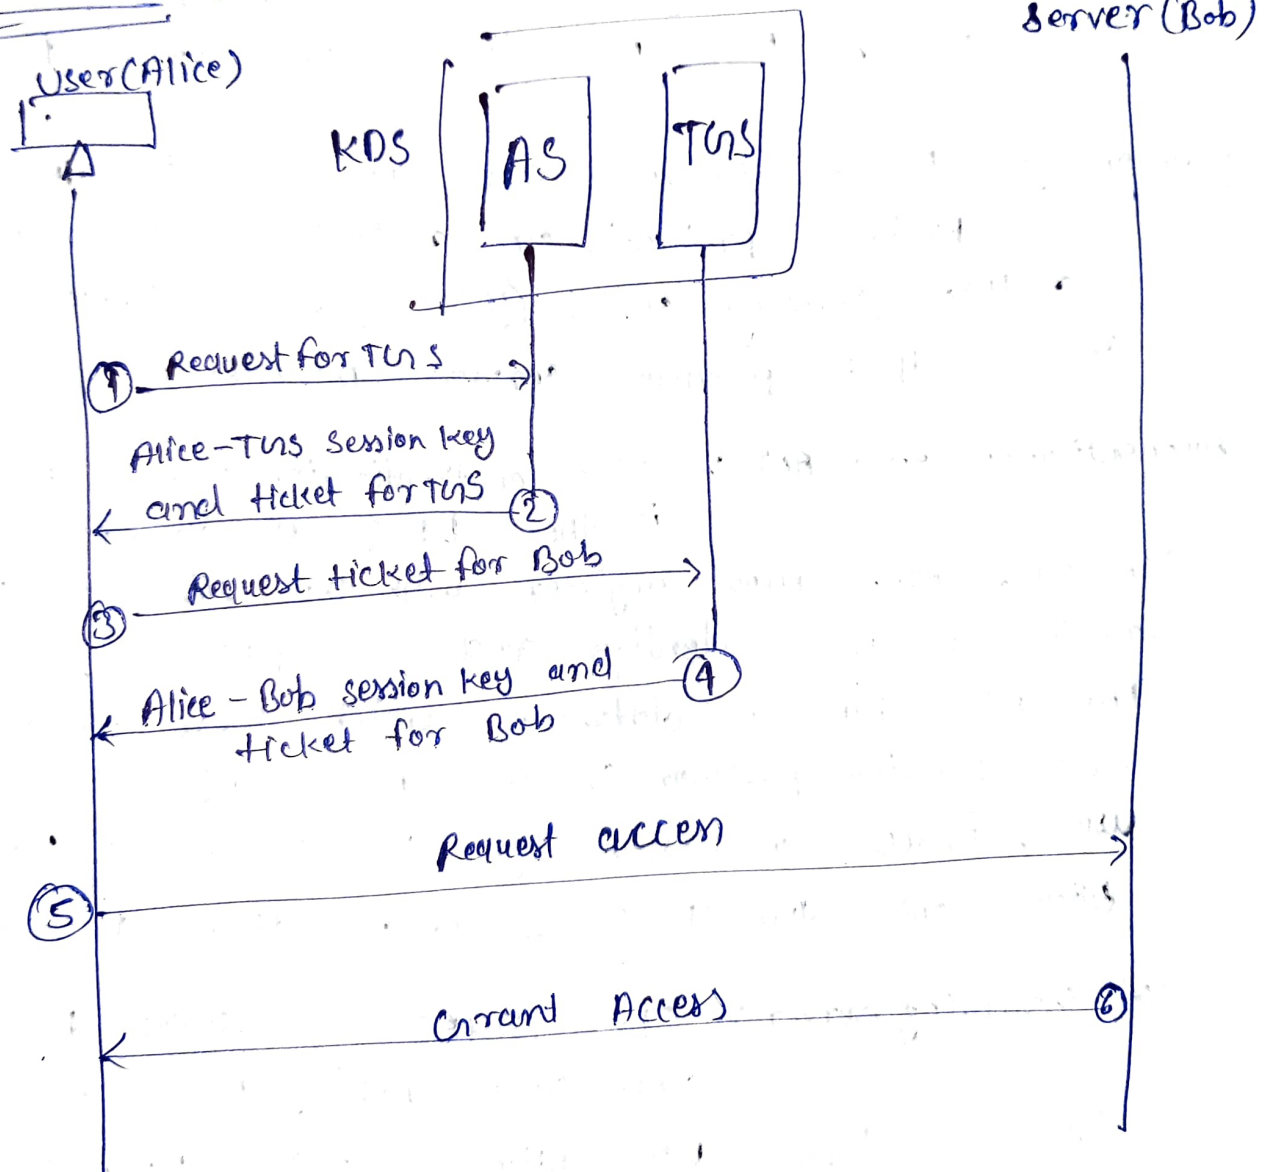 Server (Bob)
User (Alice)
KDS
AS
TGS
① Request for TGS
Alice-TGS Session key
and ticket for TGS ②
Request ticket for Bob
③
Alice - Bob session key and ④
ticket for Bob
Request access
⑤
Grant Access ⑥